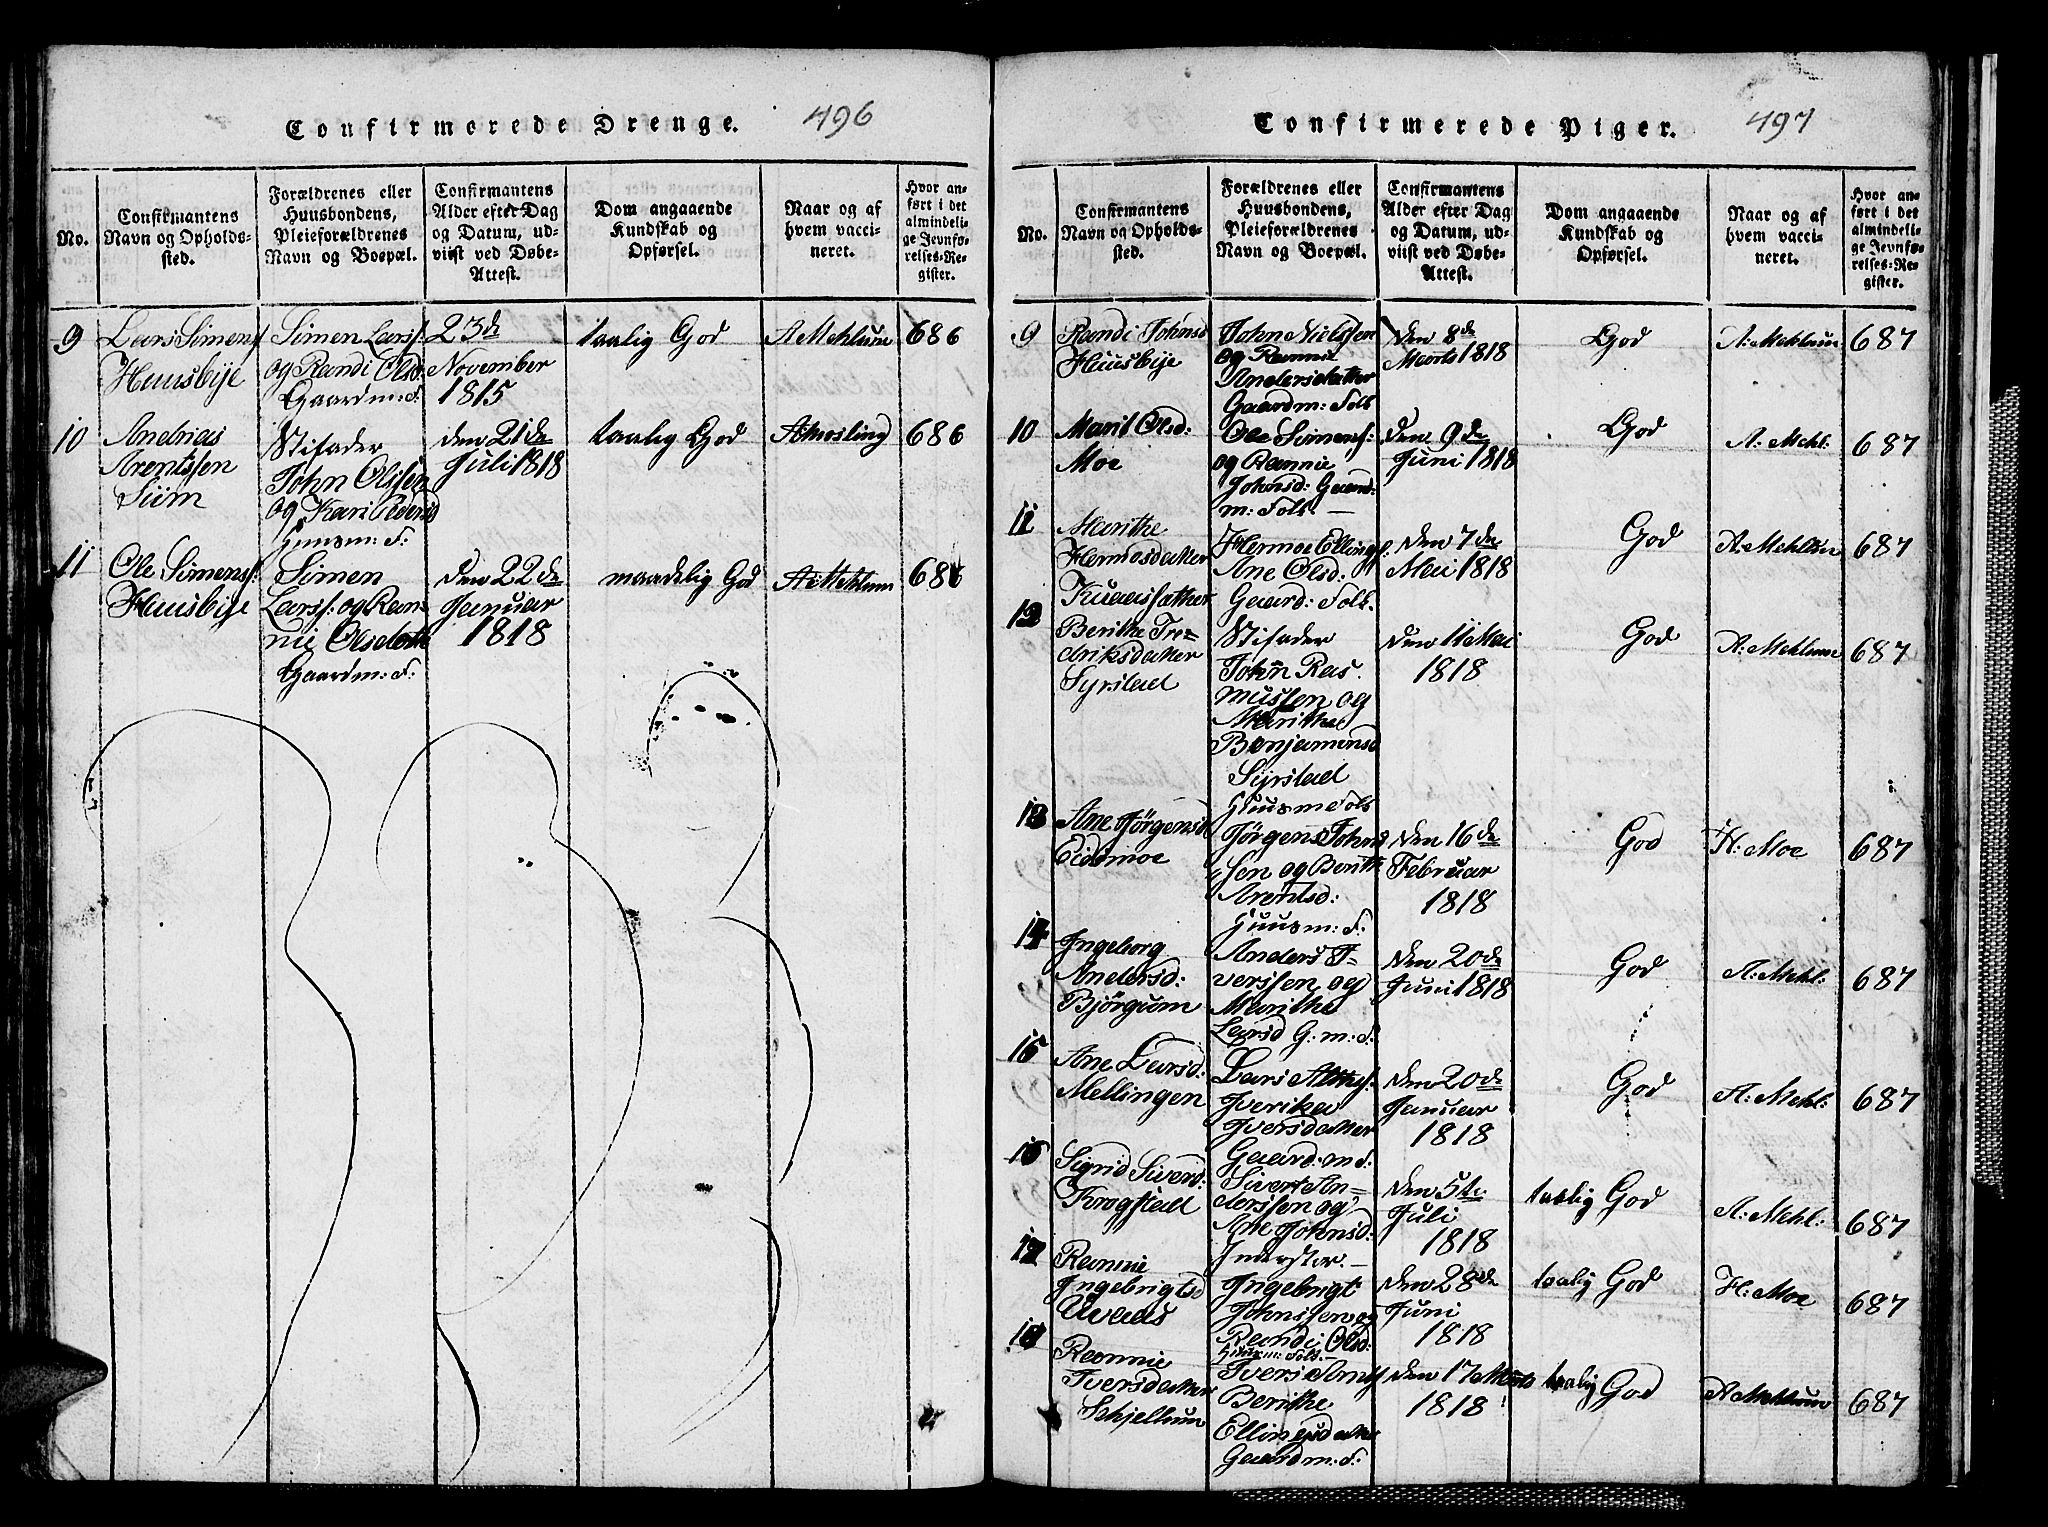 Confirmerede Drenge. 496
No.
Confirmantens
Navn og Opholds-
sted.
Forældrenes eller
Huusbondens,
Pleieforældrenes
Navn og Boepæl.
Confirmantens
Alder efter Dag
og Datum, ud-
viist ved Døbe-
Attest.
Dom angaaende
Kundskab og
Opførsel.
Naar og af
hvem vacci-
neret.
Hvor an-
ført i det
almindeli-
ge Jevnfø-
relses-Re-
gister.
9
Lars Simens
Huusbye
Simen Larss:
og Randi Olsd:
Gaardm: F.
23de
November
1815
taalig God
A Mehlum
686
10
Andreas
Arentssen
Siim
Stifader
John Olssen
og Kari Peders
Huusm: F.
den 21de
Juli 1818
taalig God
686
11
Ole Simens:
Huusbye
Simen
Larss: og Ran=
nie Olsdatt
Gaardm: F.
den 22de
Januar
1818
maadelig God
A: Mehlum
686
Confirmerede Piger. 497
No.
Confirmantens
Navn og Opholds-
sted.
Forældrenes eller
Huusbondens,
Pleieforældrenes
Navn og Boepæl.
Confirmantens
Alder efter Dag
og Datum, ud-
viist ved Døbe-
Attest.
Dom angaaende
Kundskab og
Opførsel.
Naar og af
hvem vacci-
neret.
Hvor an-
ført i det
almindeli-
ge Jevnfø-
relses-Re-
gister.
9
Randi Johnsd
Huusbye
John Nielssen
og Rannie
Andersdatter
Gaardm: Folk
den 8de
Marts 1818
God
A: Mehlum
687
10
Marit Olsd:
Moe
Ole Simens:
og Rannie
Johnsd: Gaard:
m: Folk. —
den 9de
Juni 1818
God
A: Mehl:
687
11
Marithe
Hermosdatter
Hermoe Ellings.
Ane Olsd:
Gaard: Folk.
den 7de
Mai 1818
God
A: Mehlum
687
12
Berithe Fre=
driksdatter
Syrstad
Stifader
John Ras.
mussen og
Marithe
Benjamensd
Syrstad
Huusm Folk
den 11 Mai
1818
God
A: Mehlum
687
13
Ane Jørgensd
Eidsmoe
Jørgen Johns
sen og Berith
Arentsd:
Huusm: F.
den 16de
Februar
1818
God
H: Moe
687
14
Ingeborg
Andersd:
Bjørgum
Anders I=
verssen og
Marithe
Larsd G: m: F.
den 20de
Juni 1818
God
A: Mehl:
687
15
Ane Larsd:
Mellingen
Lars
Iverika
Iversdatter
Gaard: m F.
den 20de
Januar
1818
God
A: Mehl:
687
16
Sigrid Siverd:
Frogstad
Sivert An=
derssen og
Ane Johnsd:
Inderster. —
den 5te
Juli
1818
taalig God
A: Mehl:
687
17
Rannie
Ingebrigtsd
Ingebrigt
Johnssen og
Randi Olsd:
Huusm: Folk. —
den 28de
Juni
1818
taalig God
H: Moe
687
18
Rannie
Iversdatter
Schjellum
Berithe
Ellingsdatter
Gaardm: F.
den 17 Marts
1818
taalig God
A Mehlum
687